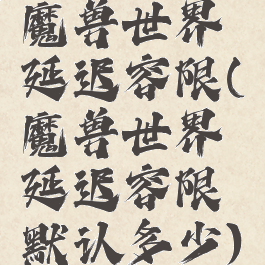 魔兽世界
延迟容限(
魔兽世界
延迟容限
默认多少)